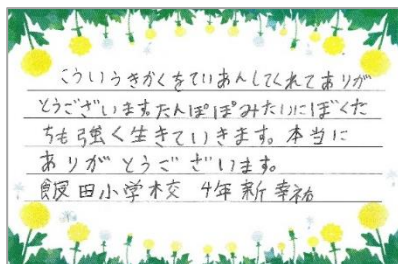 こういうきかくをていあんしてくれてありが
とうございます。たんぽぽみたいにぼくた
ちも強く生きていきます。本当に
ありがとうございます。
飯田小学校 4年 新 幸祐